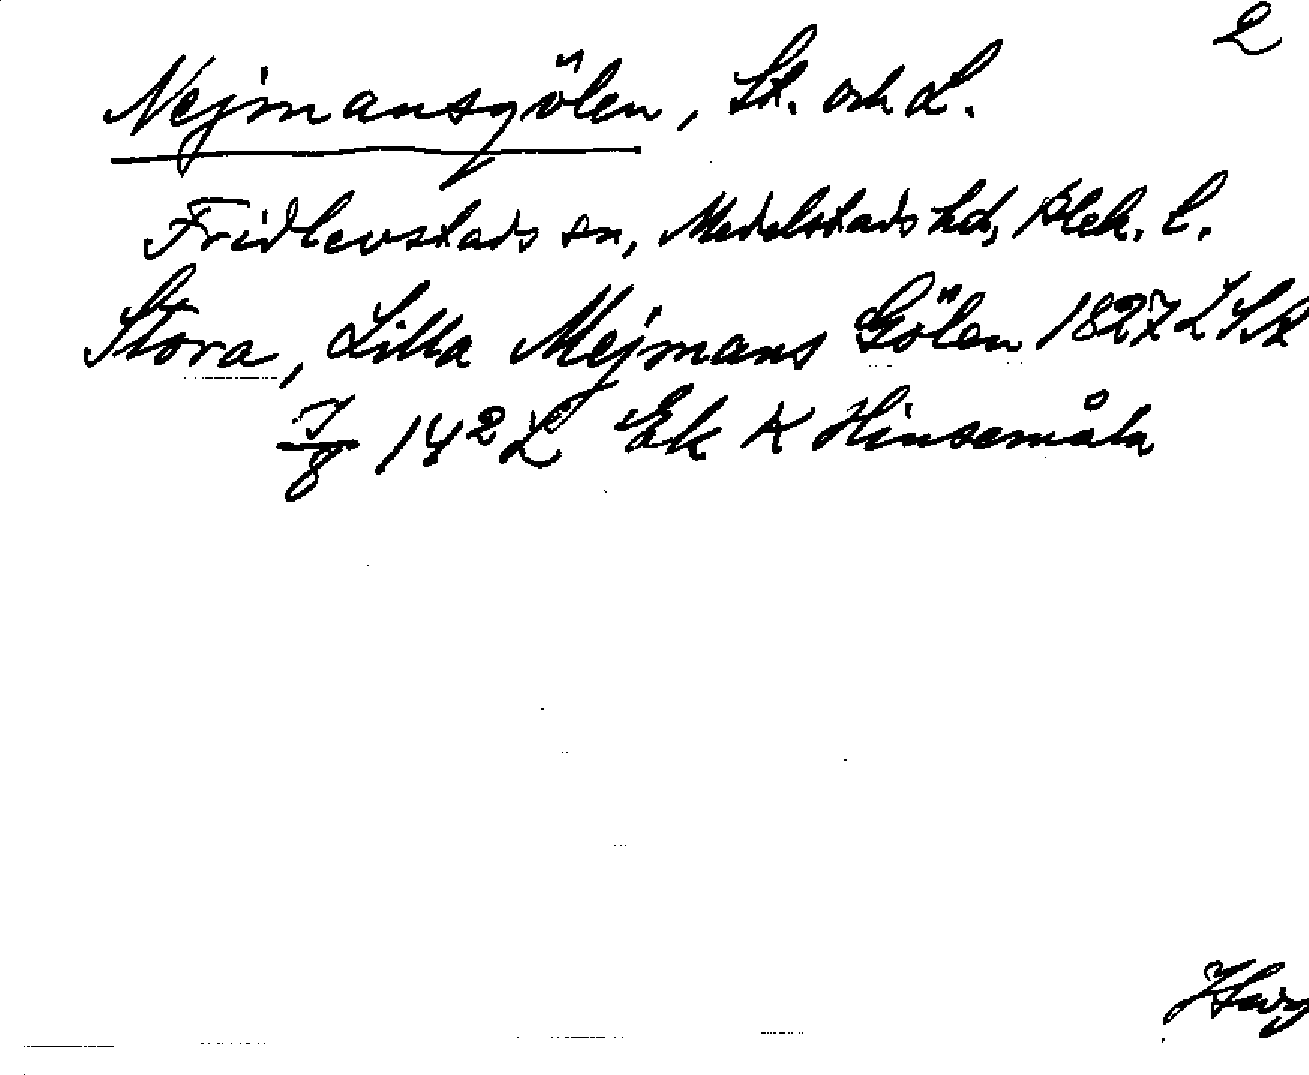 2
Nejmansgölen, St. och L.
Fridlevstads sn, Medelstads hd, Blek. l.
Stora, Lilla Mejmans Gölen 1827 LSK
7/8 142 L Ek K Hinsemåla